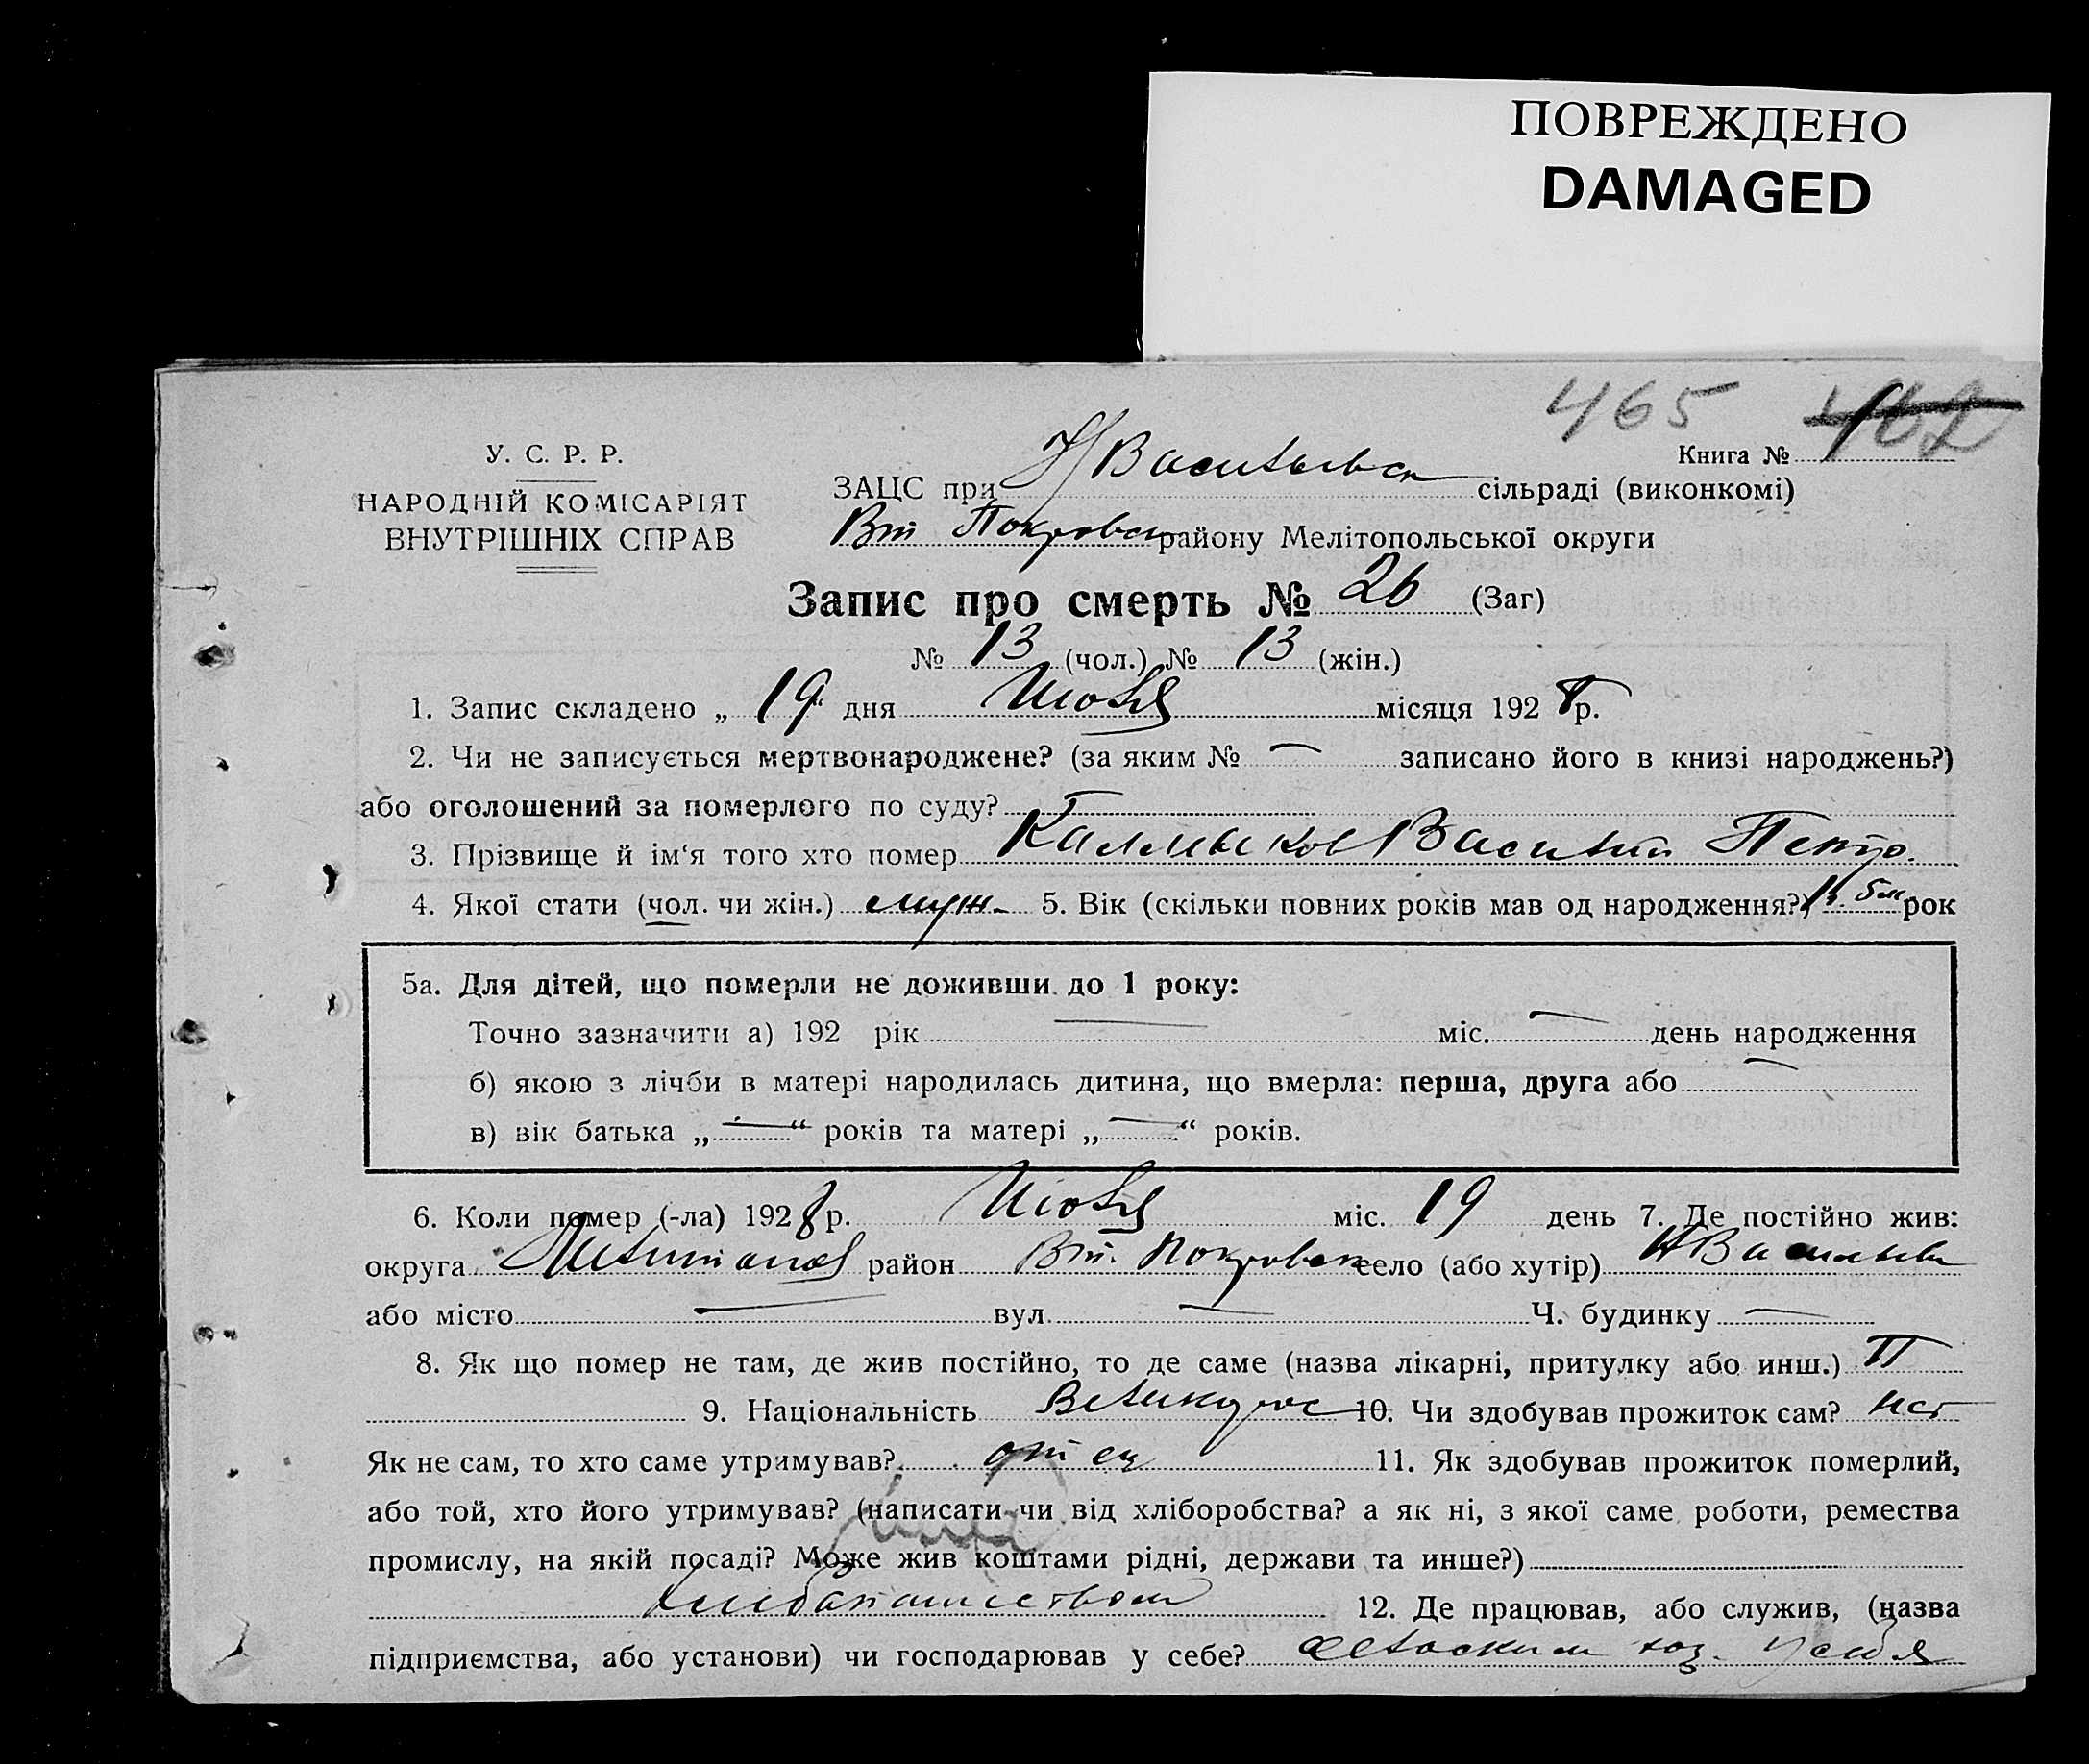 ПОВРЕЖДЕНО
DAMAGED
465 462
У. С. Р. Р.
НАРОДНІЙ КОМІСАРІЯТ
ВНУТРІШНІХ СПРАВ
Книга №
ЗАЦС при Н Васильевск сільраді (виконкомі)
Вт Покровск району Мелітопольської округи
Запис про смерть № 26 (Заг)
№ 13 (чол.) № 13 (жін.)
1. Запис складено „ 19 “ дня Июля місяця 1928 р.
2. Чи не записується мертвонароджене? (за яким № — записано його в книзі народжень?)
або оголошений за померлого по суду? —
3. Прізвище й ім‘я того хто помер Калмыков Василий Петр.
4. Якої стати (чол. чи жін.) муж. 5. Вік (скільки повних років мав од народження?) 5м. рок
5а. Для дітей, що померли не доживши до 1 року:
Точно зазначити а) 192 рік — міс. — день народження
б) якою з лічби в матері народилась дитина, що вмерла: перша, друга або —
в) вік батька „ — “ років та матері „ — “ років.
6. Коли помер (-ла) 1928 р. Июля міс. 19 день 7. Де постійно жив:
округа район Вт. Покровск село (або хутір) Н Васильевк
або місто — вул. — Ч. будинку —
8. Як що помер не там, де жив постійно, то де саме (назва лікарні, притулку або инш.)
9. Національність Великорос 10. Чи здобував прожиток сам? нет
Як не сам, то хто саме утримував? отец 11. Як здобував прожиток померлий,
або той, хто його утримував? (написати чи від хліборобства? а як ні, з якої саме роботи, ремества
промислу, на якій посаді? Може жив коштами рідні, держави та инше?)
хлебопашеством 12. Де працював, або служив, (назва
підприємства, або установи) чи господарював у себе? сельским хоз. у себя